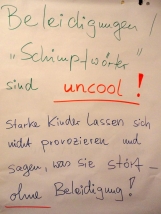 Beleidigungen /
"Schimpfwörter"
sind uncool!
Starke Kinder lassen sich
nicht provozieren und
sagen, was sie stört –
ohne Beleidigung!